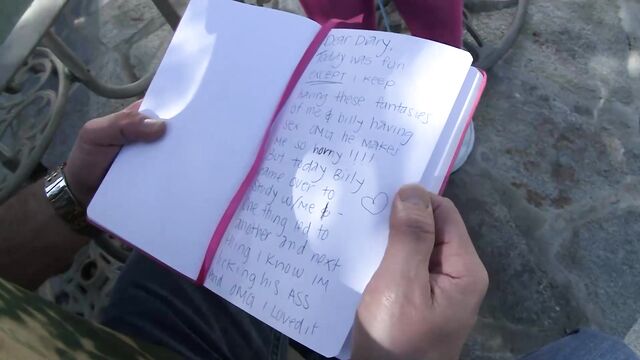 Dear Diary,
Today was fun
EXCEPT I keep
having these fantasies
of me & billy having
sex OMG he makes
me so horny !!!!
But today Billy
came over to
study w/me & -
one thing led to
another and next
thing I know Im
licking his ASS
and OMG I Loved it